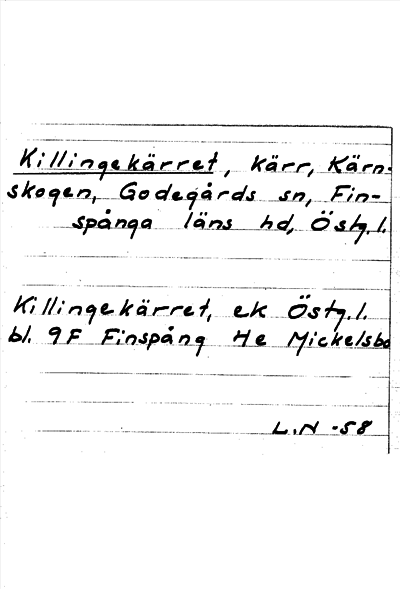 Killingekärret, kärr, Kärn-
skogen, Godegårds sn, Fin-
spånga läns hd, Östg.l.
Killingekärret, ek Östg.l.
bl. 9F Finspång He Mickelsbo
L.N -58